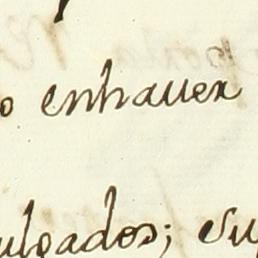 o enhauer
ulgados; su